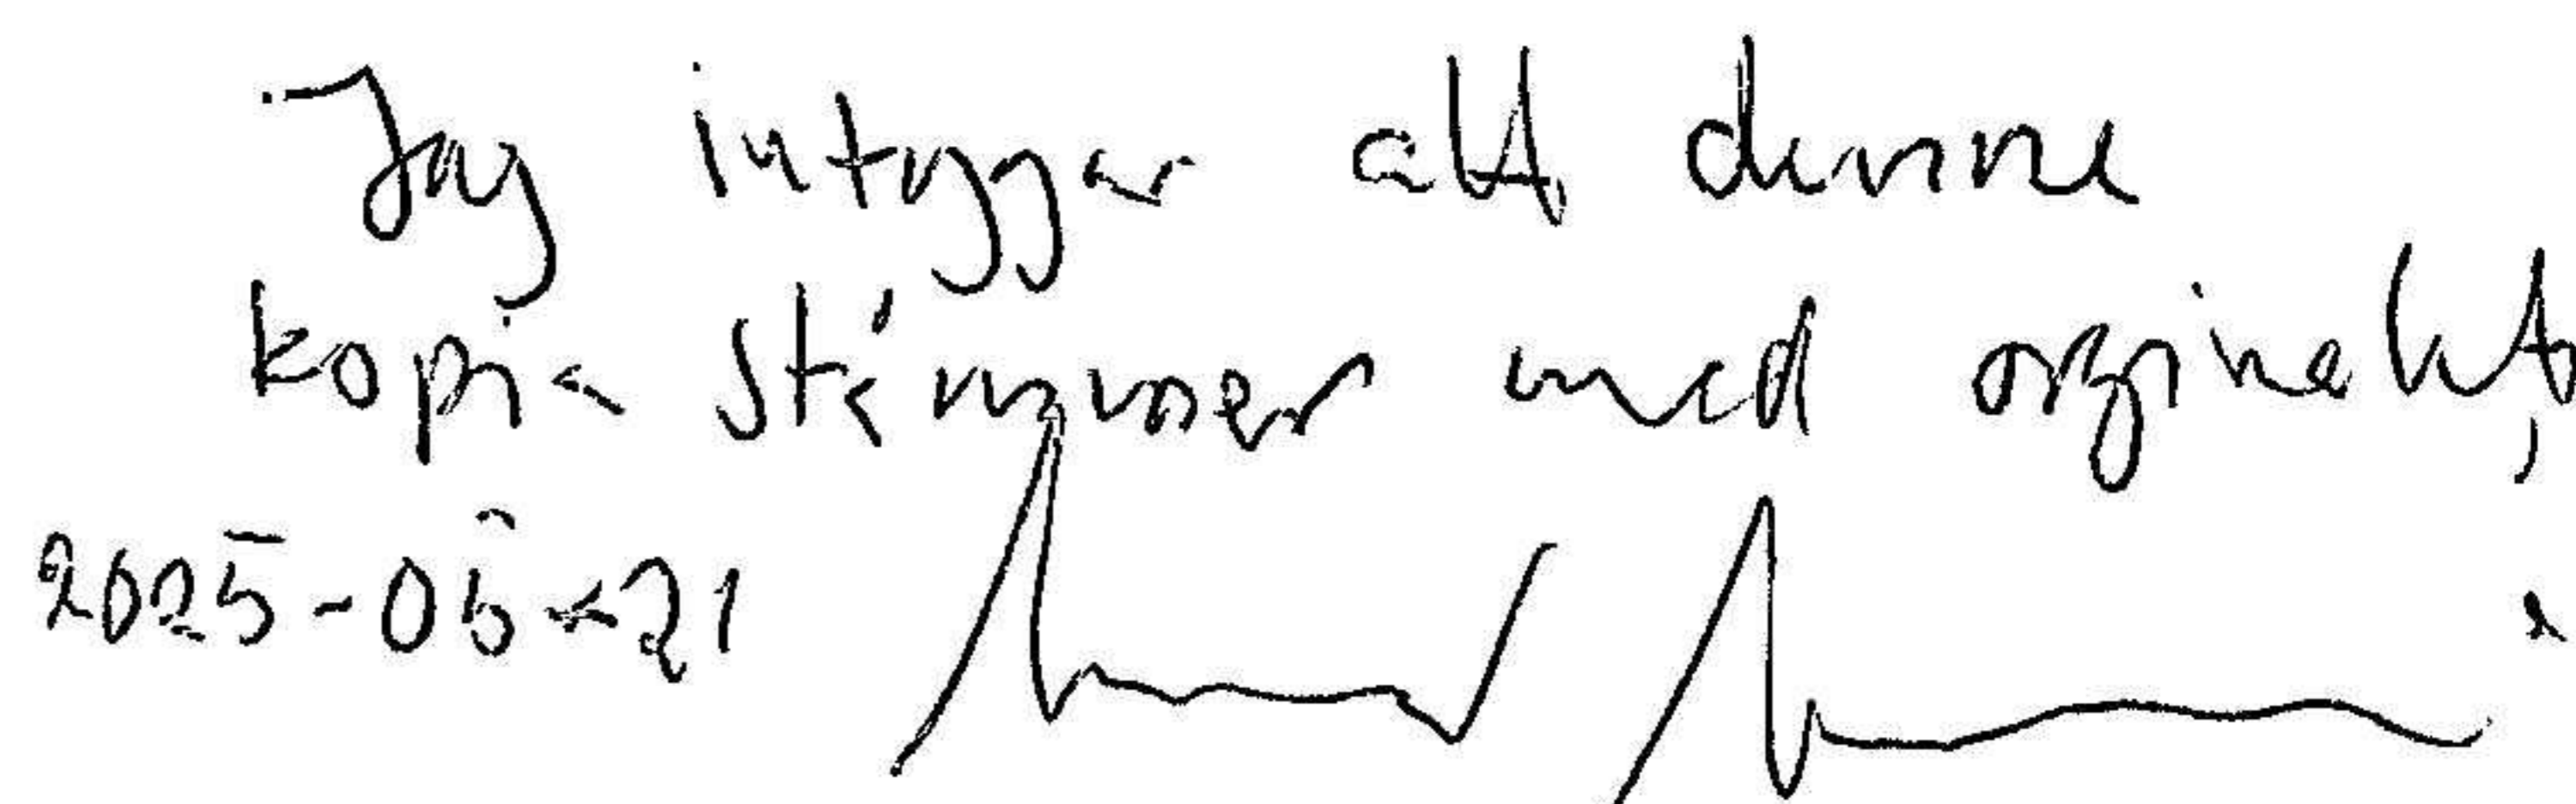 Jag intygar att denna
kopia stämmer med orginalet,
2025-05-21